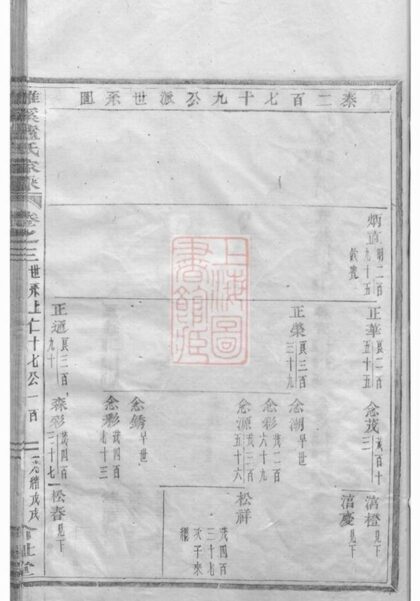 泰二百七十九公派世系圖
炳直 明二百九十五
正華 良二百五十五
念茂 茂百十三
濆橙 見下
濆慶 見下
正榮 良三百三十九
念潮 早世
念彩 茂二百六十九
念源 茂三百五十六
松祥 茂四百三十七次子來繼
念鏽 早世
念彩 茂四百七十三
正通 良三百九十
森彩 茂四百三十七
松春 見下
氏家乘
卷之三
世系上仁十七公
一百
光緒戊戌
世堂
上海圖書館藏